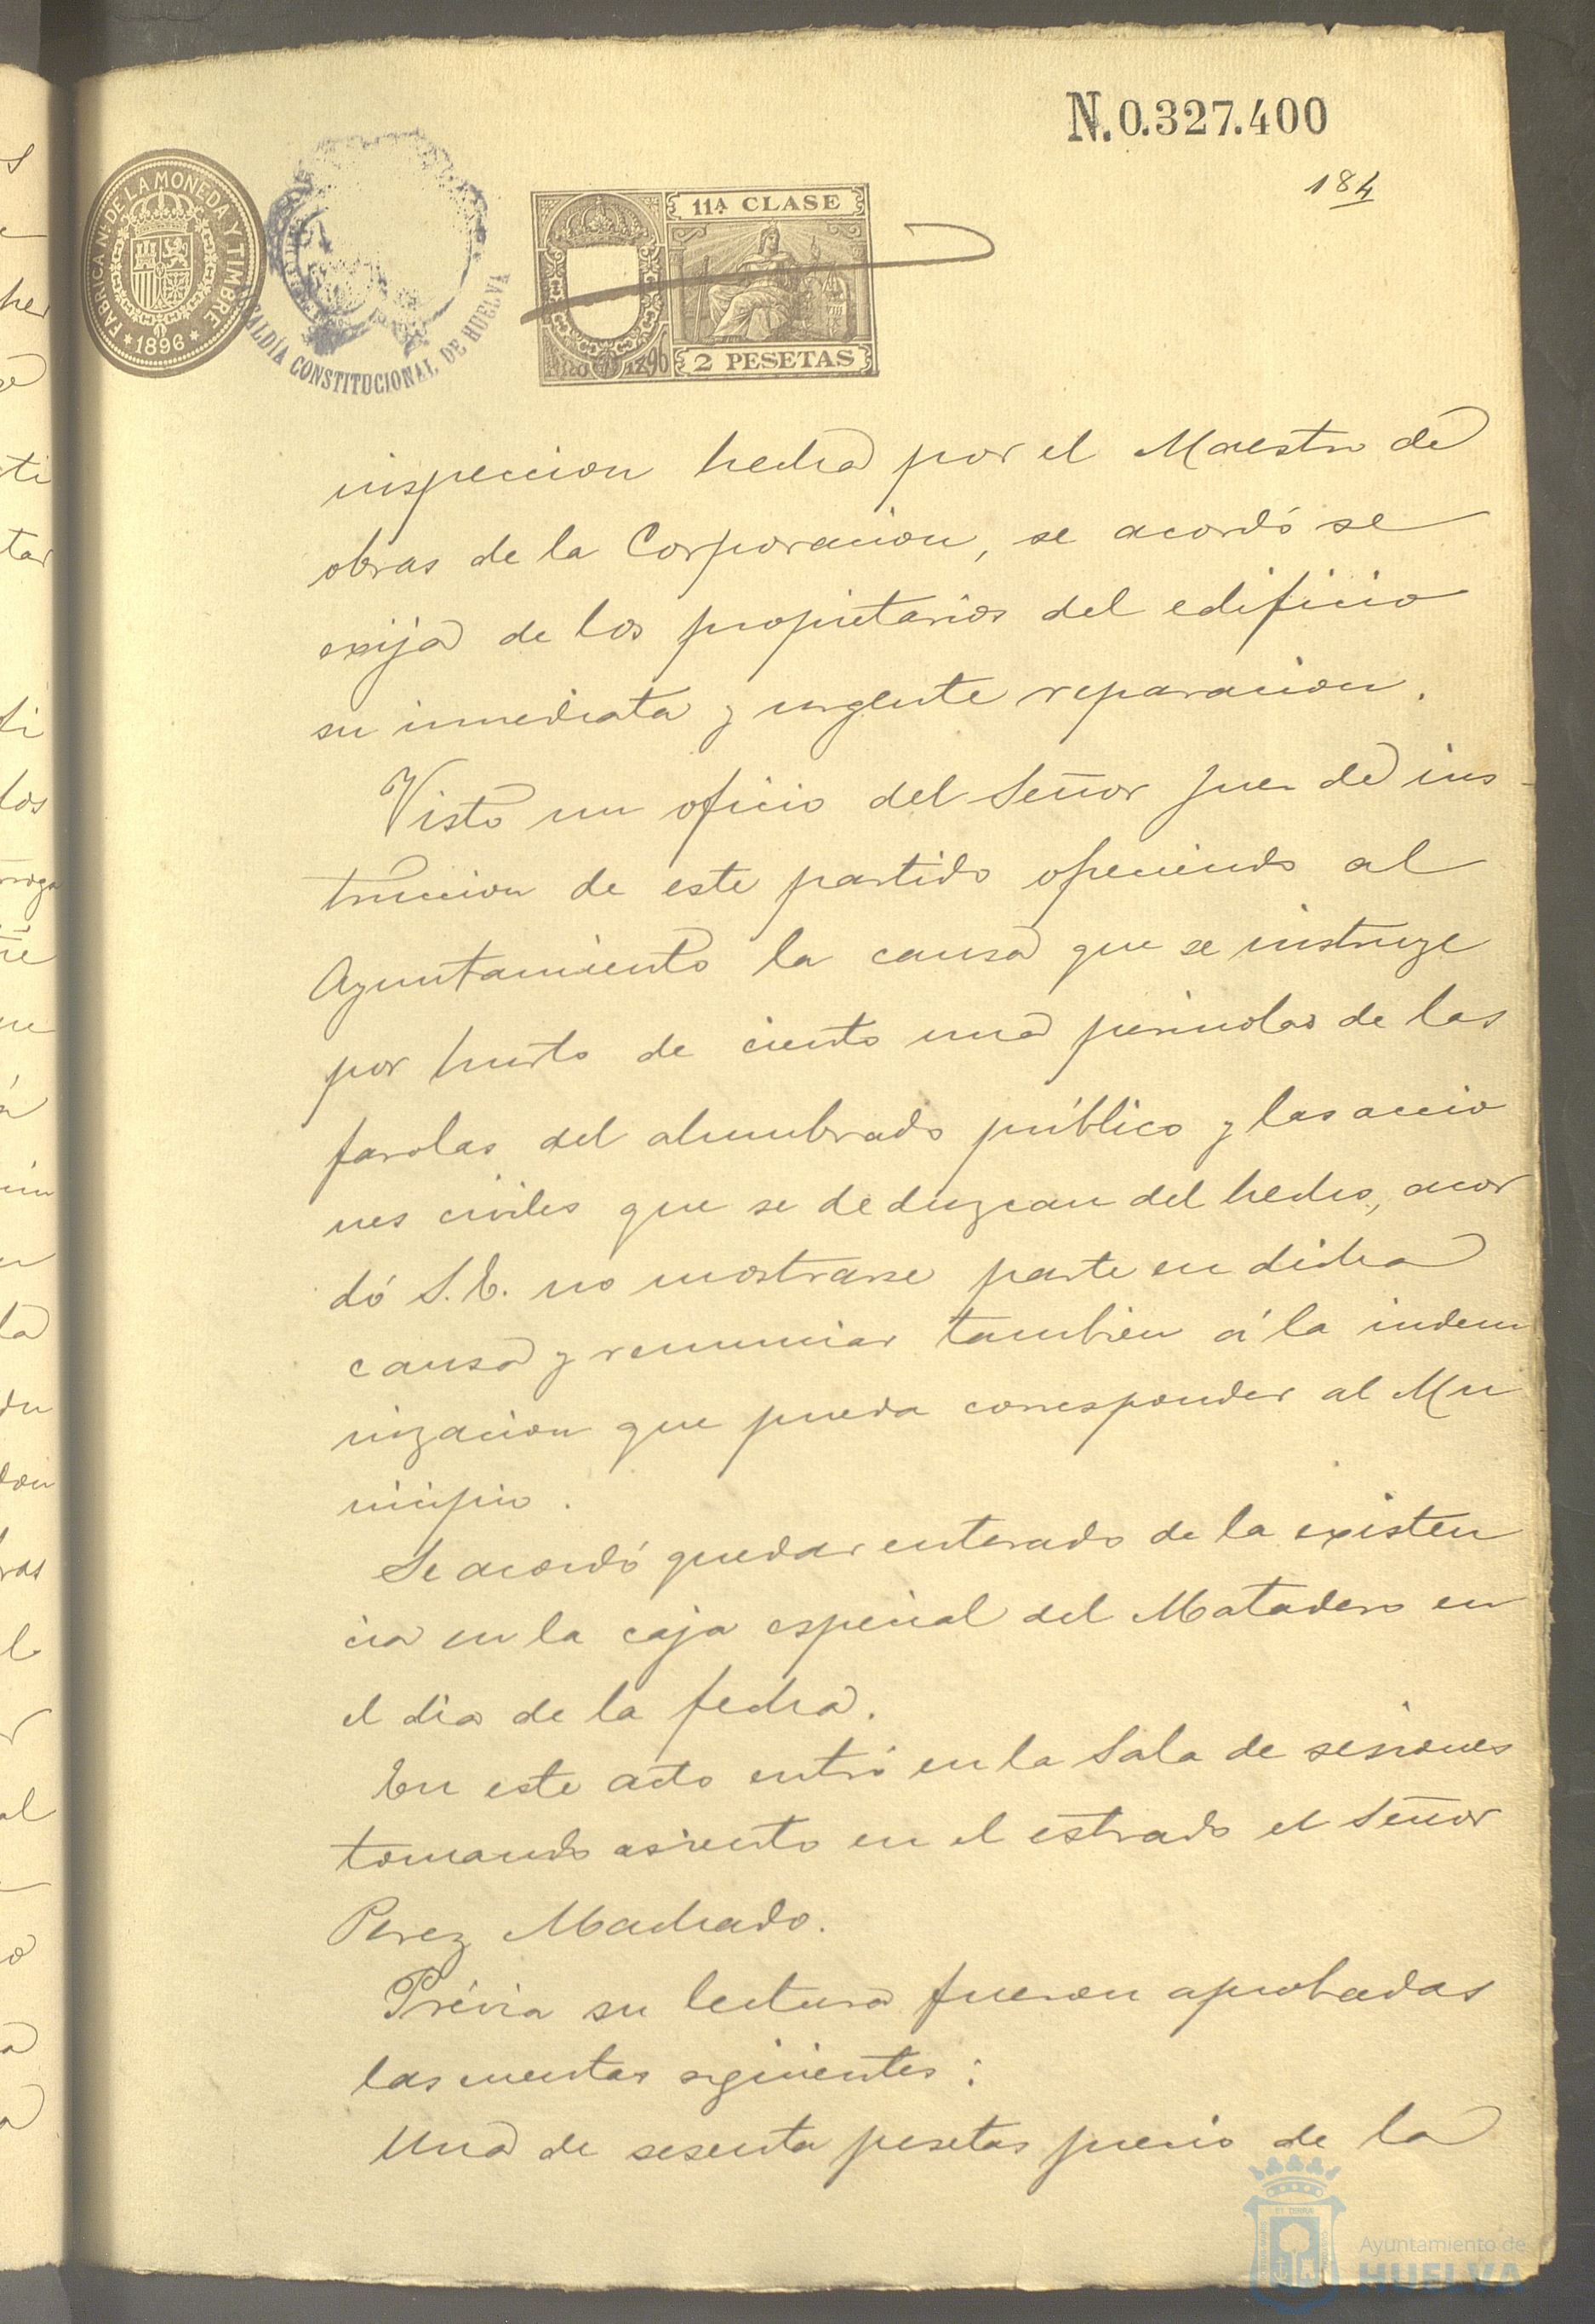 N.0.327.400
184
FABRICA NL DE LA MONEDA Y TIMBRE
* 1896 *
ALCALDÍA CONSTITUCIONAL DE HUELVA
11ª CLASE
2 PESETAS
inspeccion hecha por el Maestro de
obras de la Corporacion, se acordó se
exija de los propietarios del edificio
su inmediata y urgente reparacion.
Visto un oficio del Señor Juez de ins-
truccion de este partido ofreciendo al
Ayuntamiento la causa que se instruye
por hurto de ciento una perinolas de las
farolas del alumbrado público y las accio
nes civiles que se deduzcan del hecho, acor
dó S.E. no mostrarse parte en dicha
causa y renunciar tambien á la indem
nizacion que pueda corresponder al Mu
nicipio.
Se acordó quedar enterado de la existen
cia en la caja especial del Matadero en
el dia de la fecha.
En este acto entró en la Sala de sesiones
tomando asiento en el estrado el Señor
Perez Machado.
Prévia su lectura fueron aprobadas
las cuentas siguientes:
Una de sesenta pesetas precio de la
Ayuntamiento de
HUELVA